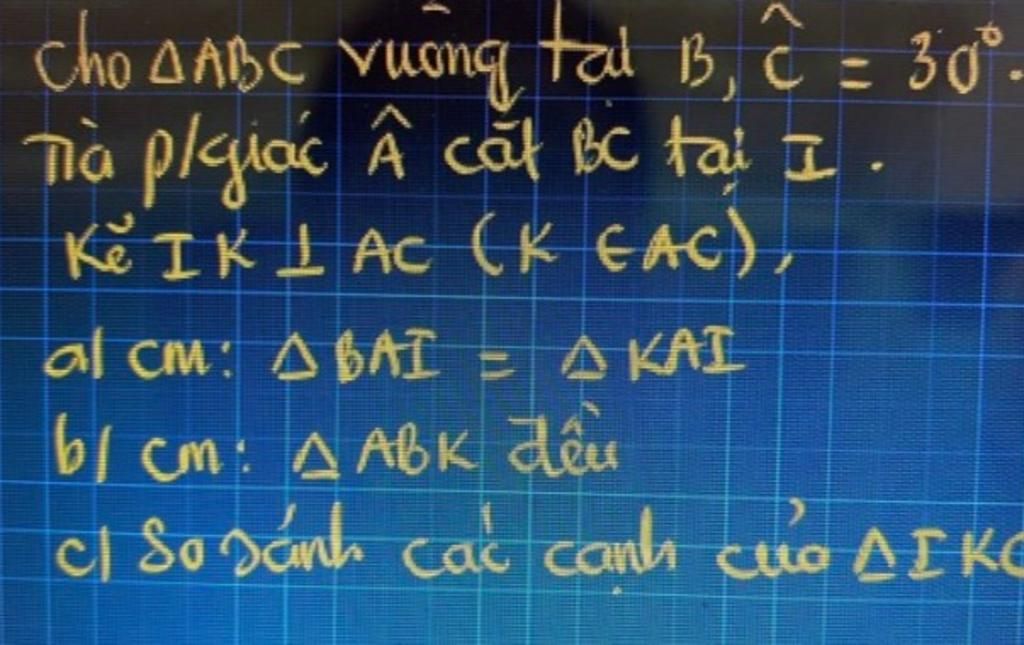 Cho ΔABC vuông tại B, Ĉ = 30°.
Tia p/giác Â cắt BC tại I.
Kẽ IK ⊥ AC (K ∈ AC),
a/ cm: Δ BAI = Δ KAI
b/ cm: Δ ABK đều
c/ So sánh các cạnh của Δ IKC